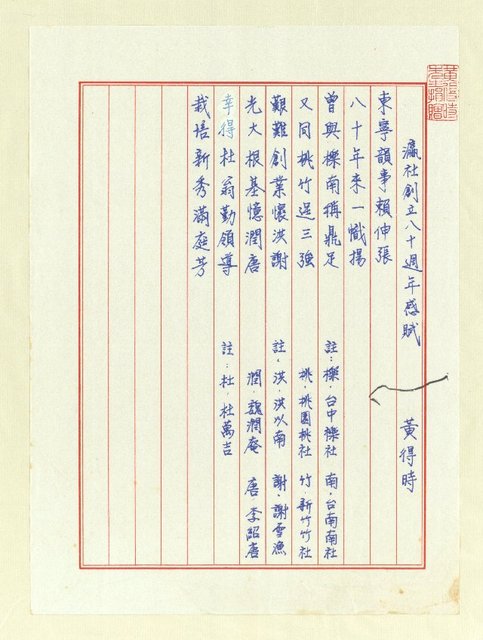 瀛社創立八十週年感賦 黃得時
東寧韻事賴伸張
八十年來一幟揚
曾與櫟南稱鼎足 註：櫟，台中櫟社 南，台南南社
又同桃竹逞三強 桃，桃園桃社 竹，新竹竹社
艱難創業懷洪謝 註、洪，洪以南 謝，謝雪漁
光大根基憶潤唐 潤，魏潤庵 唐，李紹唐
幸得杜翁勤領導 註：杜，杜萬吉
栽培新秀滿庭芳